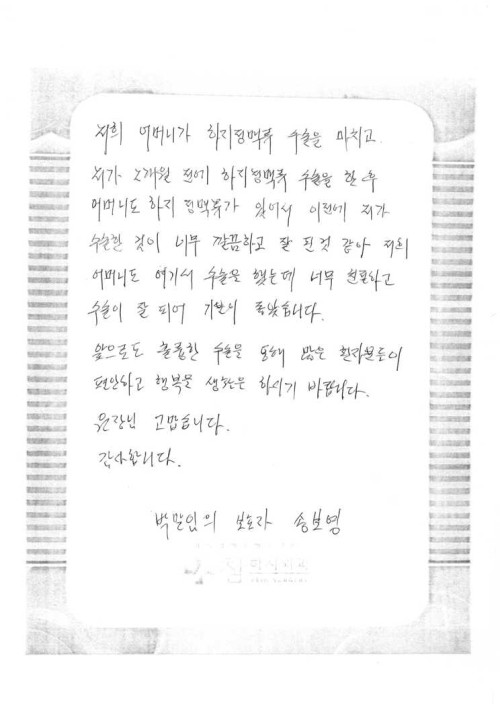 저희 어머니가 하지정맥류 수술을 마치고.
제가 2개월 전에 하지정맥류 수술을 한 후
어머니도 하지정맥류가 있어서 이전에 제가
수술한 것이 너무 깔끔하고 잘 된것 같아 저희
어머니도 여기서 수술을 했는데 너무 편하고
수술이 잘 되어 기분이 좋았습니다.
앞으로도 훌륭한 수술을 통해 많은 환자분들이
편안하고 행복을 생활을 하시기 바랍니다.
원장님 고맙습니다.
감사합니다.
박말임의 보호자 송보영